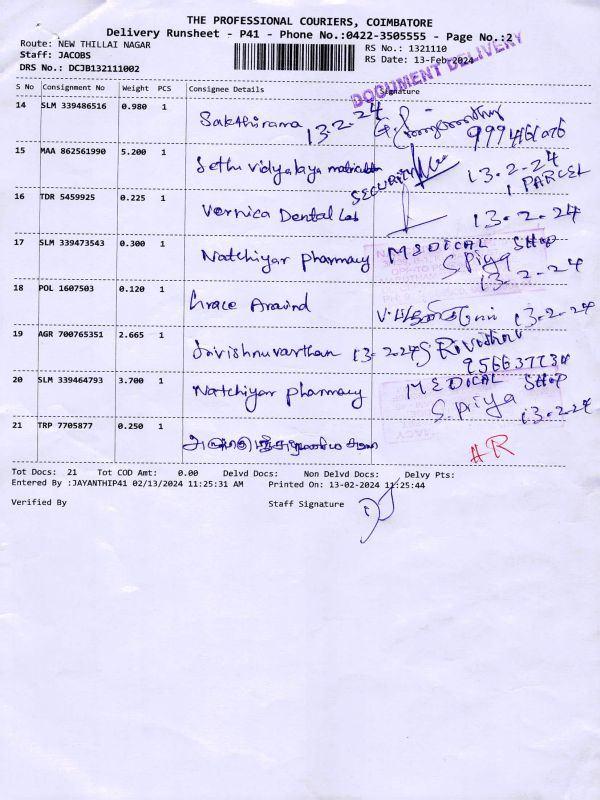 THE PROFESSIONAL COURIERS, COIMBATORE
Delivery Runsheet - P41 - Phone No.:0422-3505555 - Page No.:2
Route: NEW THILLAI NAGAR
RS No.: 1321110
Staff: JACOBS
RS Date: 13-Feb-2024
DRS No.: DCJB132111002
DOCUMENT DELIVERY
S No Consignment No Weight PCS Consignee Details Signature
14 SLM 339486516 0.980 1 Sakthirama 13.2.24
15 MAA 862561990 5.200 1 Sethu vidyalaya SECURITY 13.2.24
1 PARCEL
16 TDR 5459925 0.225 1 Vernica Dental Lab 13.2.24
17 SLM 339473543 0.300 1 Natchiyar pharmacy MEDICAL SHOP
S.Piya
13-2-24
18 POL 1607503 0.120 1 Grace Aravind 13-2-24
19 AGR 700765351 2.665 1 Srivishnuvarthan 13-2-24
20 SLM 339464793 3.700 1 Natchiyar pharmacy MEDICAL SHOP
S.priya
13-2-24
21 TRP 7705877 0.250 1
#R
Tot Docs: 21 Tot COD Amt: 0.00 Delvd Docs: Non Delvd Docs: Delvy Pts:
Entered By :JAYANTHIP41 02/13/2024 11:25:31 AM Printed On: 13-02-2024 11:25:44
Verified By Staff Signature